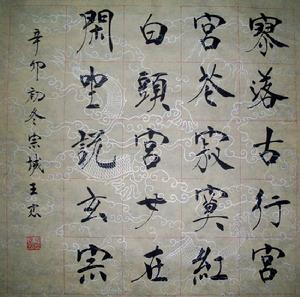 寥落古行宮
宮花寂寞紅
白頭宮女在
閑坐說玄宗
辛卯初冬宗城王忠